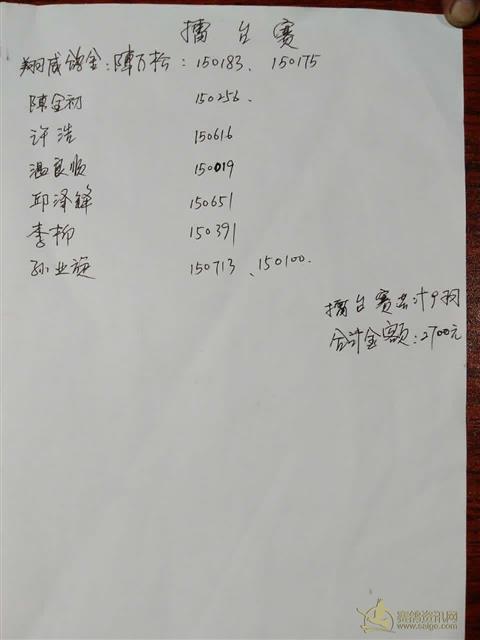 擂台赛
翔威鸽舍:陣万松:150183、150175
陈金初 150256.
许浩 150616
温良顺 150019
邱泽锋 150651
李柳 150391
孙业旋 150713、150100.
擂台赛共计9羽
合计金额:2700元
赛鸽资讯网
www.saige.com